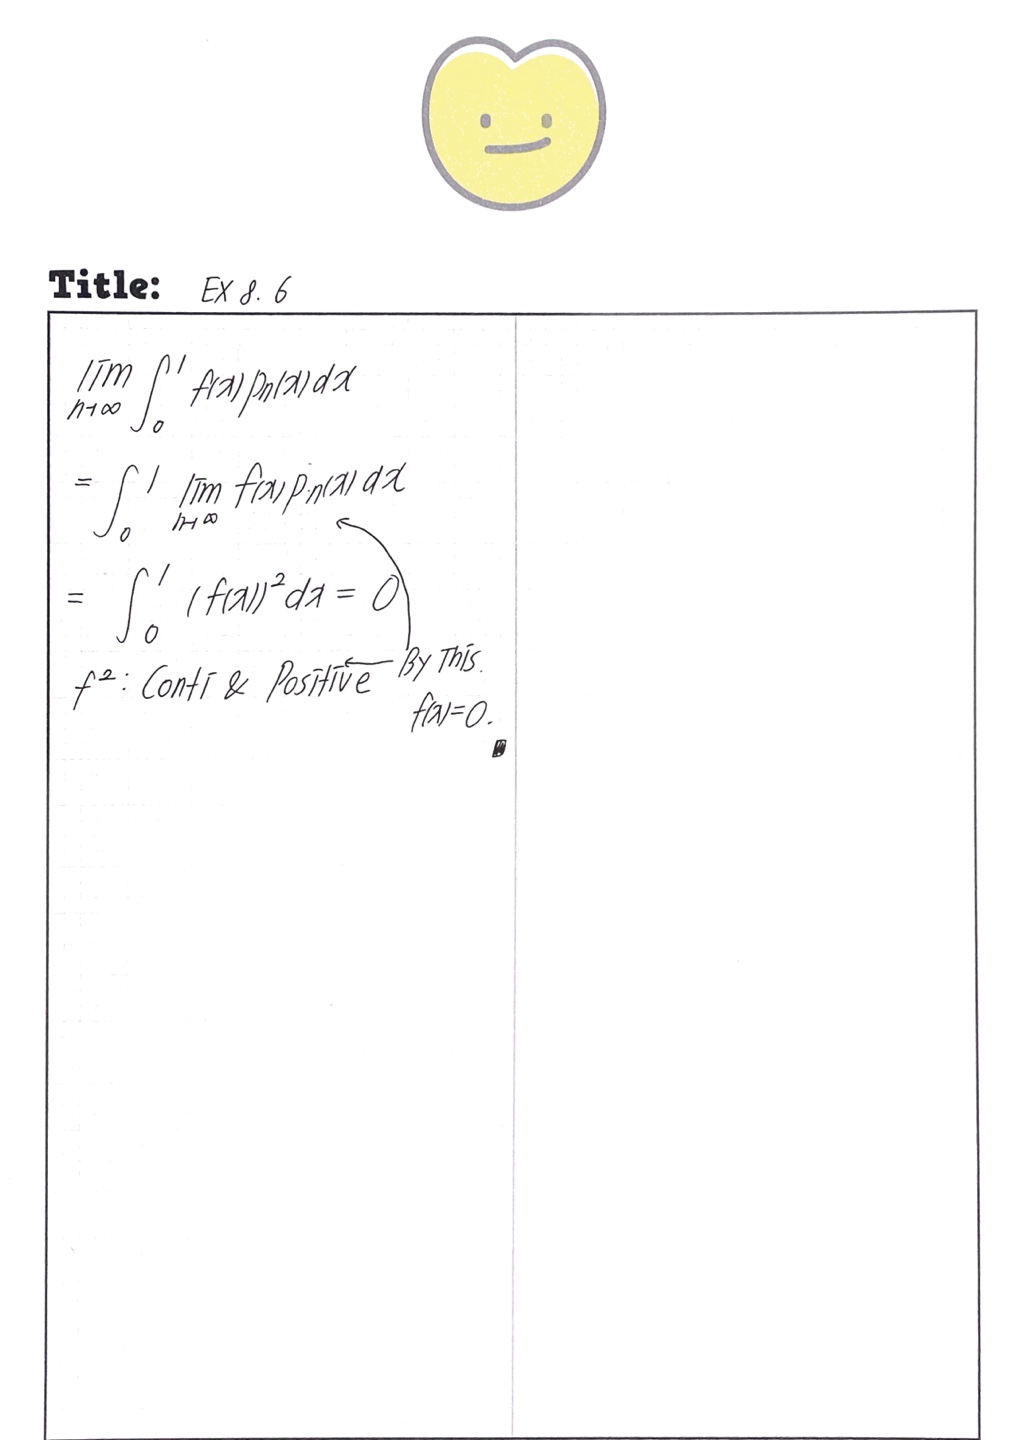 Title: EX 8. 6
lim n→∞ ∫₀¹ f(x) pn(x) dx
= ∫₀¹ lim n→∞ f(x) pn(x) dx
= ∫₀¹ (f(x))² dx = 0
f²: Conti & Positive ← By This.
f(x)=0.